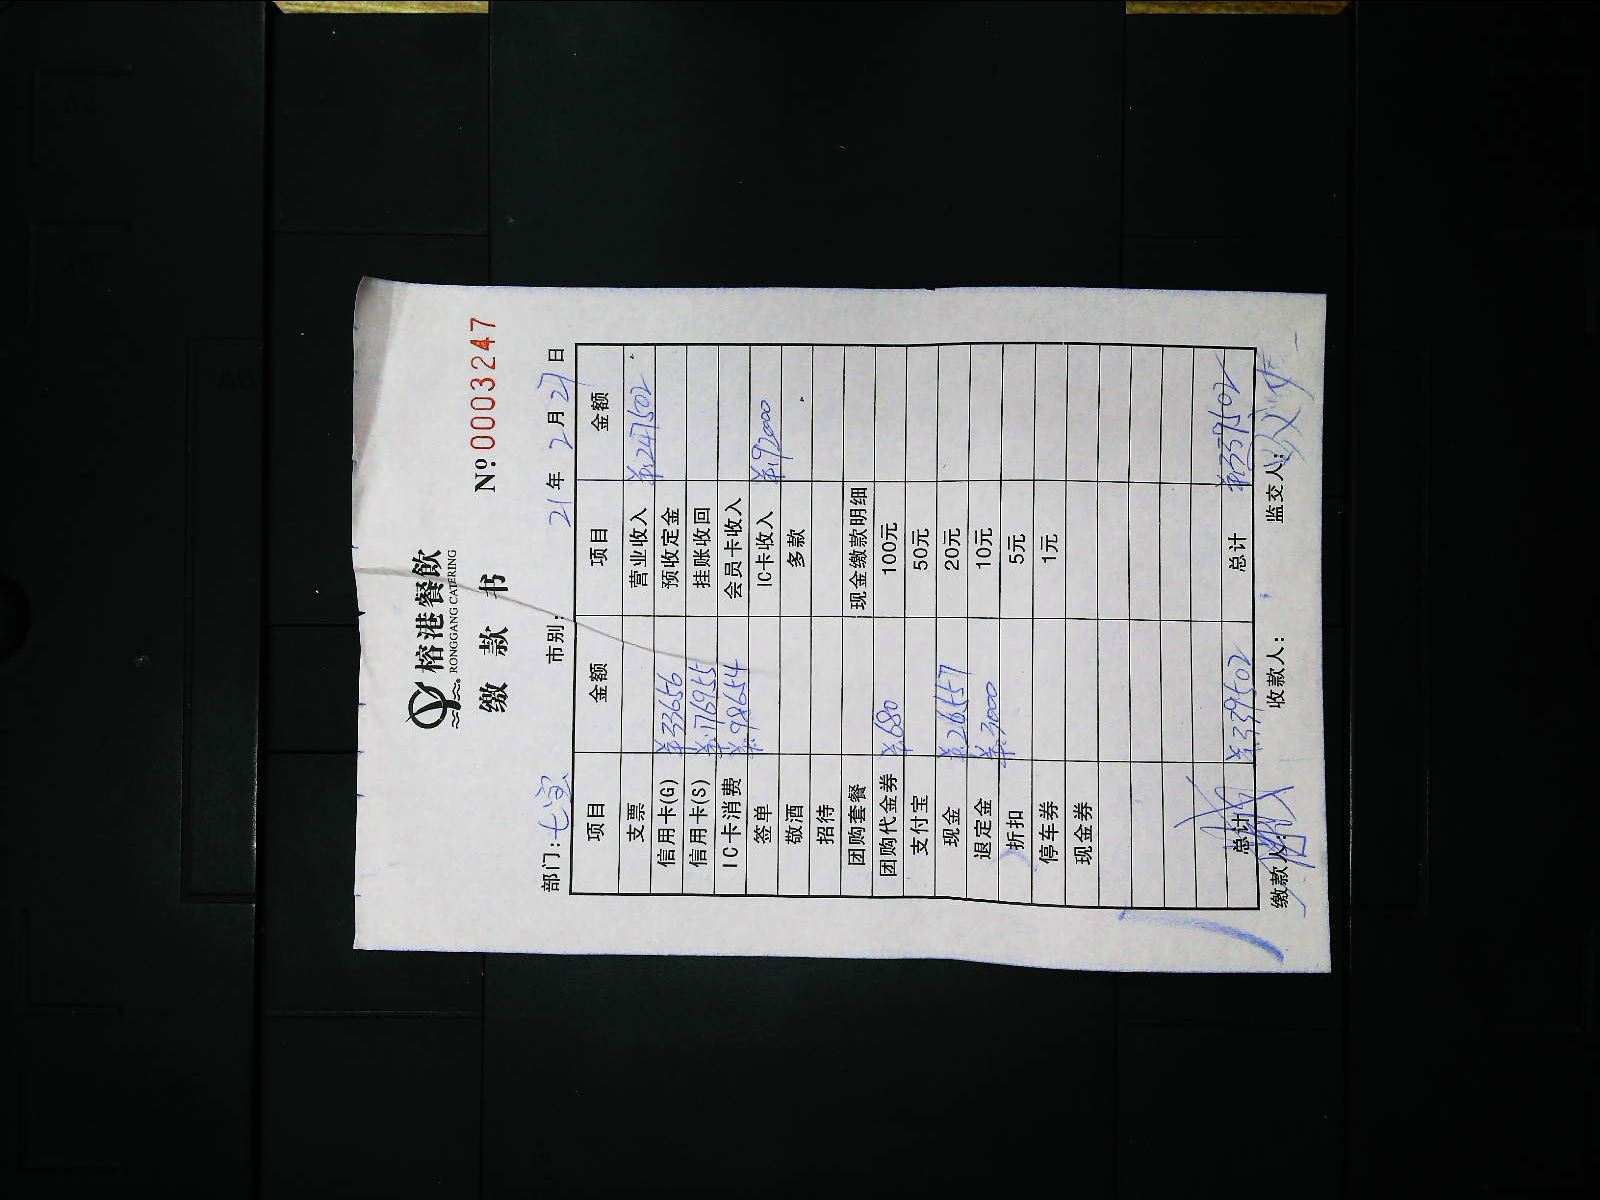 榕港餐飲
RONGGANG CATERING
缴款书
Nº:0003247
部门:七宝 市别: 21年2月27日
项目 金额 项目 金额
支票 营业收入 ¥:247502
信用卡(G) ¥:33656 预收定金
信用卡(S) ¥:176955 挂账收回
IC卡消费 ¥:98654 会员卡收入
签单 IC卡收入 ¥:92000
敬酒 多款
招待
团购套餐 现金缴款明细
团购代金券 ¥:680 100元
支付宝 50元
现金 ¥:26557 20元
退定金 ¥:3000 10元
折扣 5元
停车券 1元
现金券
总计 ¥:339502 总计 ¥:339502
缴款人: 收款人: 监交人: